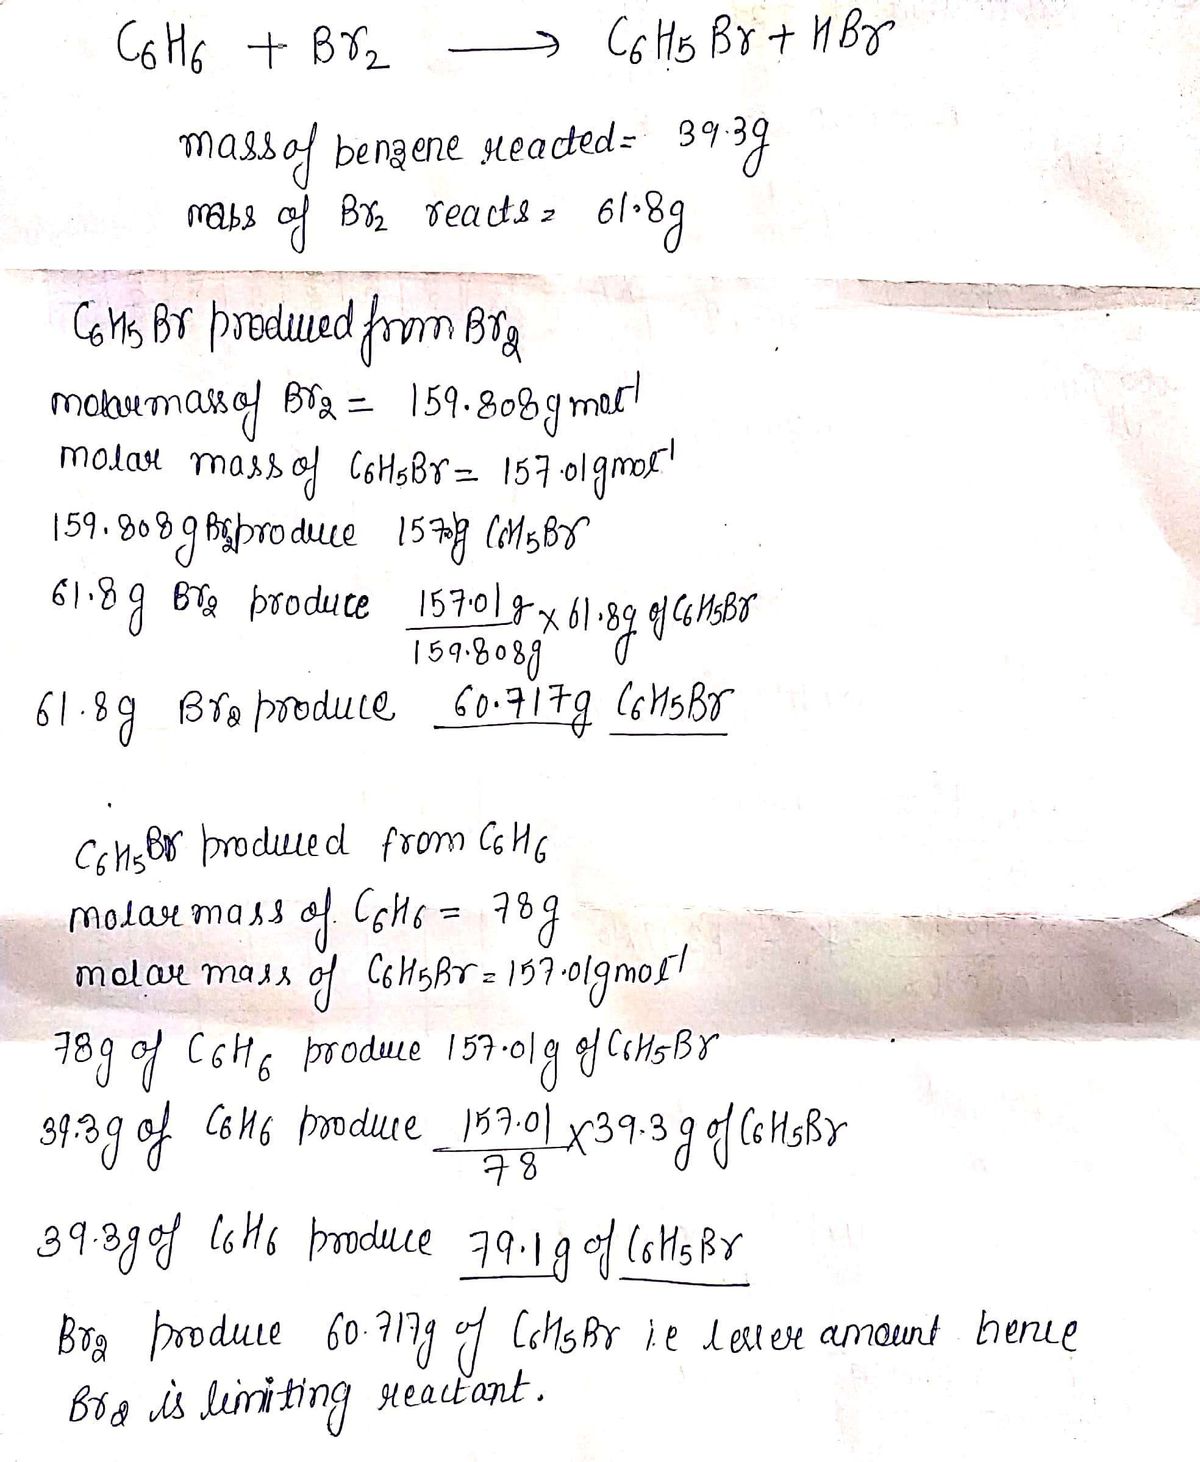 C6H6 + Br2 ⟶ C6H5Br + HBr
mass of benzene reacted = 39.3g
mass of Br2 reacts = 61.8g
C6H5Br produced from Br2
molar mass of Br2 = 159.808 g mol-1
molar mass of C6H5Br = 157.01 g mol-1
159.808 g Br2 produce 157.01g C6H5Br
61.8 g Br2 produce 157.01 g / 159.808g × 61.8g of C6H5Br
61.8g Br2 produce 60.717g C6H5Br
C6H5Br produced from C6H6
molar mass of C6H6 = 78g
molar mass of C6H5Br = 157.01g mol-1
78g of C6H6 produce 157.01g of C6H5Br
39.3g of C6H6 produce 157.01 / 78 × 39.3 g of C6H5Br
39.3g of C6H6 produce 79.1g of C6H5Br
Br2 produce 60.717g of C6H5Br i.e lesser amount hence
Br2 is limiting reactant.